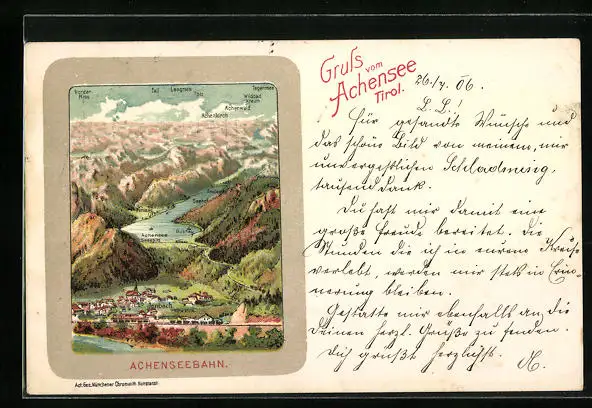 Gruſs vom
Achensee
Tirol.
26./4. 06.
L. L.!
Für gesandte Wünsche und
das schöne Bild von meinem, mir
unvergeßlichen Schladming,
tausend Dank.
Du hast mir damit eine
große Freude bereitet. Die
Stunden die ich in eurem Kreise
verlebt, werden mir stets in Erin-
nerung bleiben.
Gestatte mir ebenfalls an die
Deinen herzl. Grüße zu senden.
Dich grüßt herzlichst
Tegernsee
Wildbad
Kreuth
Achenwald
Achenkirch
Achensee
Seespitz
ACHENSEEBAHN.
Act. Ges. Münchener Chromolith. Kunstanst.